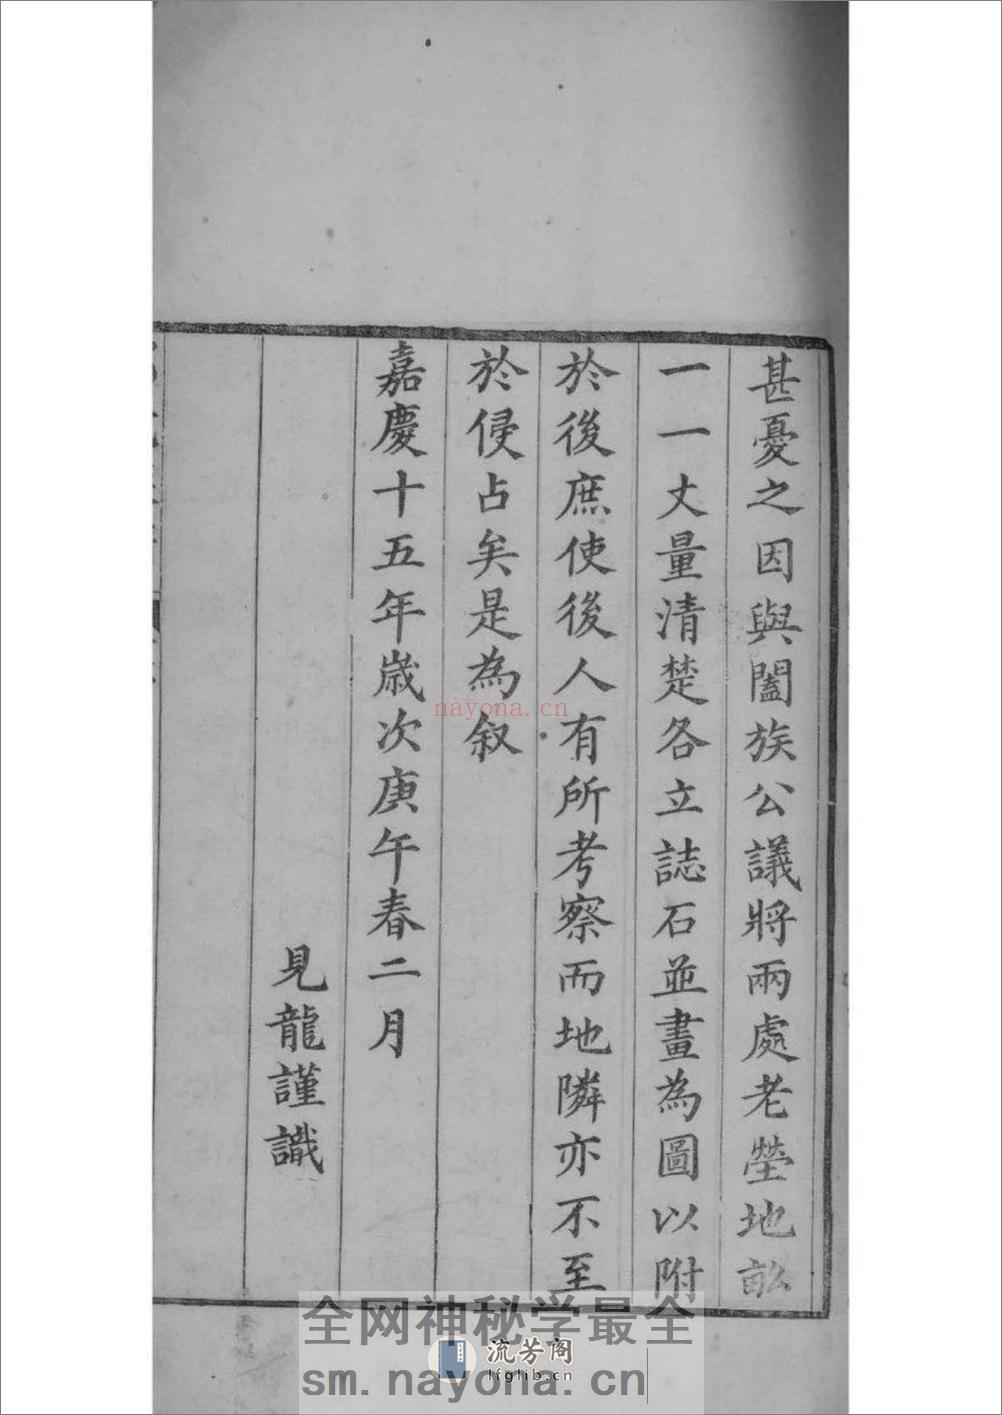 甚憂之因與闔族公議將兩處老塋地畝
一一丈量清楚各立誌石並畫為圖以附
於後庶使後人有所考察而地隣亦不至
於侵占矣是為叙
嘉慶十五年歲次庚午春二月
見龍謹識
nayona.cn
全网神秘学最全
流芳阁
lfglib.cn
sm.nayona.cn